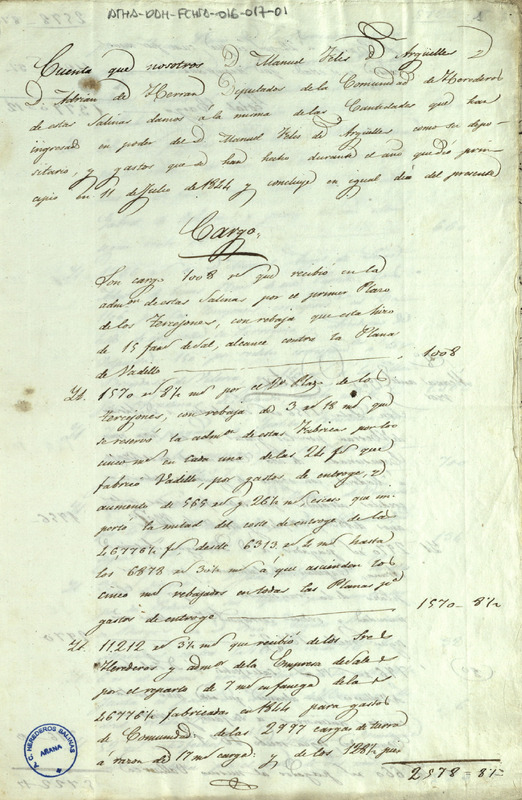 ATHA-DAH-FCHSA-016-017-01
Cuenta que nosotros D. Manuel Feles D. Argüelles y
D. Adrian de Herran Diputados de la Comunidad de Herederos
de estas Salinas damos á la misma de las Cantidades que han
ingresado en poder del D. Manuel Feles D. Argüelles como su depo-
sitario, y gastos que se han hecho durante el año que dió prin-
cipio en 11 de Julio de 1844 y concluye en igual dia del presente
Cargo,
Son cargo 1008 rs que recibió en la
admon de estas Salinas por el primer Plazo
de los Torrejones, con rebaja que esta hizo
de 15 fans de sal, alcance contra la Plana
de Vadillo 1008
Yd. 1570 rs 8½ ms por el 2º Plazo de los
Torrejones, con rebaja de 3 rs 18 ms que
se reservó la admon de estas Fabricas por los
cinco ms en cada una de las 24 fs que
fabricó Vadillo, por gastos de entroge, y
aumento de 565 rs y 26½ ms, esceso que im-
portó la mitad del coste de entroge de las
46776½ fs desde 6313 rs 4 ms hasta
los 6878 rs 30½ ms á que ascienden los
cinco ms rebajados en todas las Planas pr
gastos de entroge 1570 - 8½
Yd. 11,212 rs 3½ ms que recibió de los Sres
Herederos y admon de la Empresa de Sales
por el reparto de 7 ms en fanega de las
46776½ fabricadas en 1844 para gastos
de Comunidad: de las 2997 cargas de tierra
á razon de 17 ms carga: y de los 128½ pies
2578 = 8½
A.C. HEREDEROS SALINAS
AÑANA